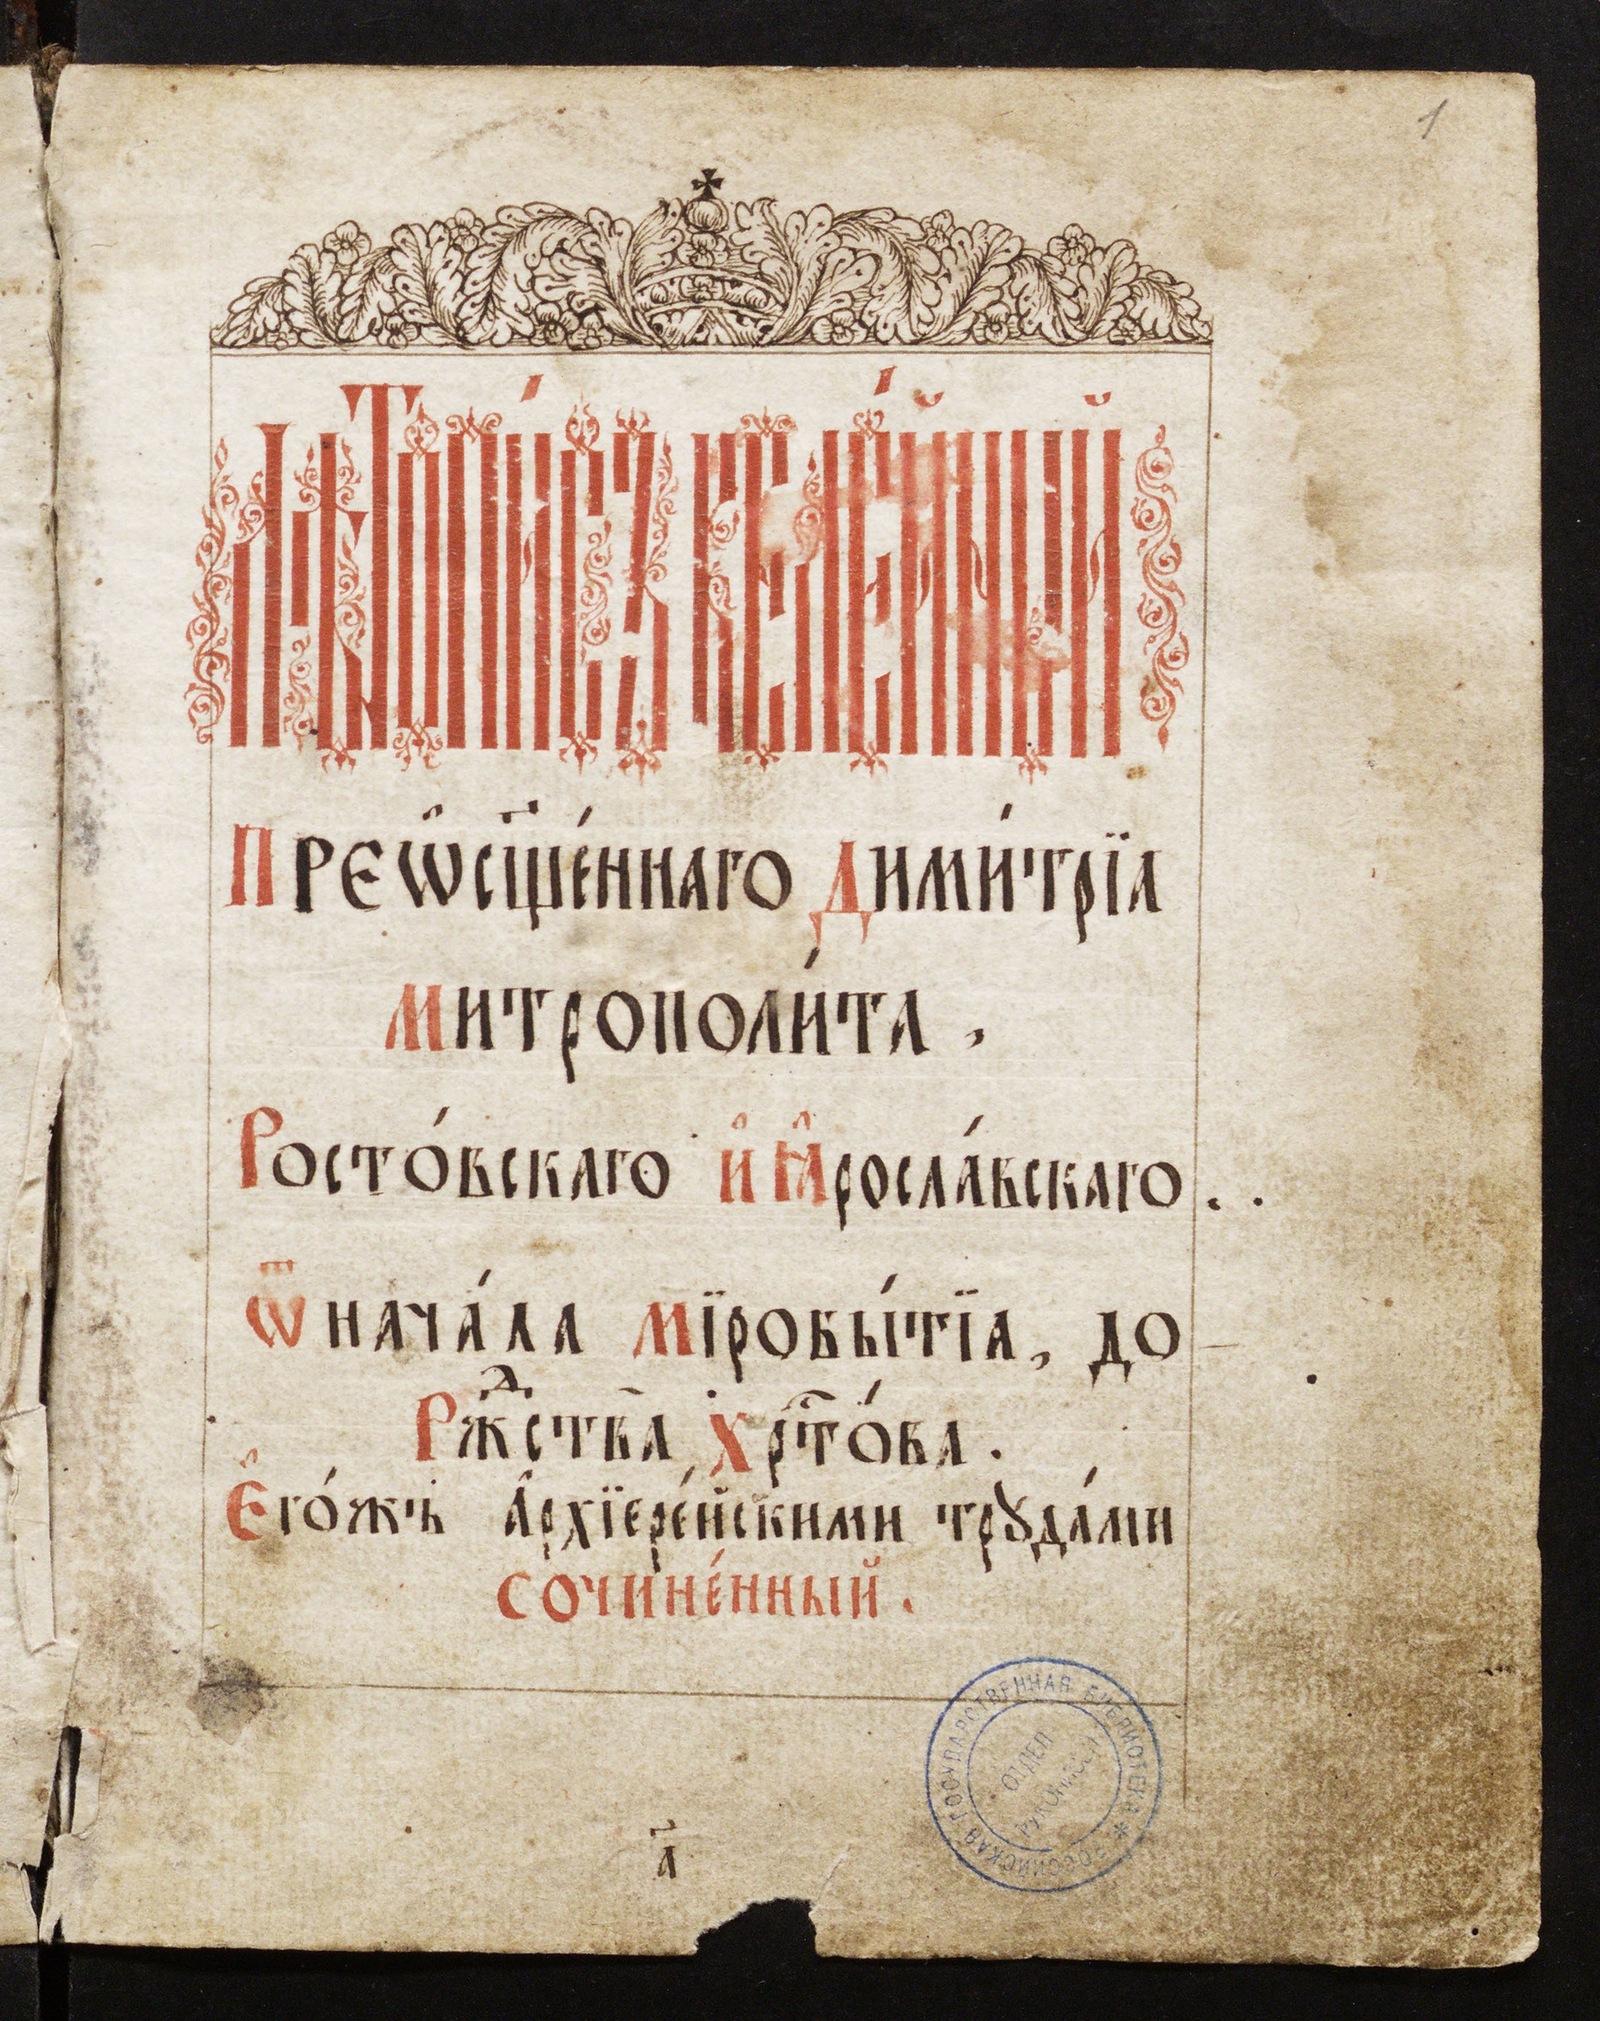 1
Лѣтопи́съ келе́йный
Преѡ̑сщ҃е́ннаго Дими́трїа
Митрополи́та ,
Росто́вскаго и҆ Ꙗ҆росла́вскаго . .
Ѿ нача́ла мїробы́тїѧ , до
Рж҃ⷣства Хрⷭ҇то́ва .
Е҆го́жъ а҆рхїере́йскими трꙋда́ми
сочине́нный .
РОССИЙСКАЯ ГОСУДАРСТВЕННАЯ БИБЛИОТЕКА *
ОТДЕЛ
РУКОПИСЕЙ
а҃